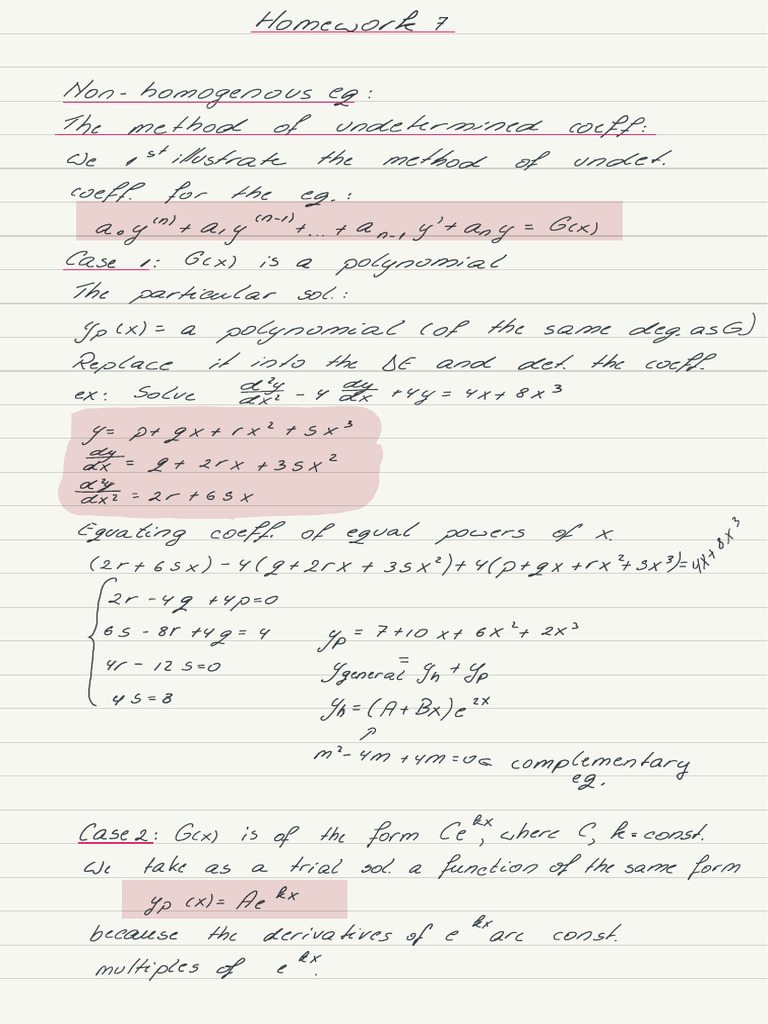 Homework 7
Non-homogenous eq:
The method of undetermined coeff:
We 1st illustrate the method of undet.
coeff. for the eq.:
a₀y⁽ⁿ⁾ + a₁y⁽ⁿ⁻¹⁾ + ... + aₙ₋₁ y' + aₙy = G(x)
Case 1: G(x) is a polynomial
The particular sol.:
yₚ(x) = a polynomial (of the same deg. as G)
Replace it into the ΔE and det. the coeff.
ex: Solve d²y/dx² - 4 dy/dx + 4y = 4x + 8x³
y = p + qx + rx² + sx³
dy/dx = q + 2rx + 3sx²
d²y/dx² = 2r + 6sx
Equating coeff. of equal powers of x.
(2r + 6sx) - 4(q + 2rx + 3sx²) + 4(p + qx + rx² + sx³) = 4x + 8x³
2r - 4q + 4p = 0
6s - 8r + 4q = 4
4r - 12s = 0
4s = 8
yₚ = 7 + 10x + 6x² + 2x³
y general = yₕ + yₚ
yₕ = (A + Bx)e²ˣ
↑
m² - 4m + 4m = 0 ← complementary
eq.
Case 2: G(x) is of the form Ceᵏˣ, where C, k = const.
We take as a trial sol. a function of the same form
yₚ(x) = Aeᵏˣ
because the derivatives of eᵏˣ are const.
multiples of eᵏˣ.